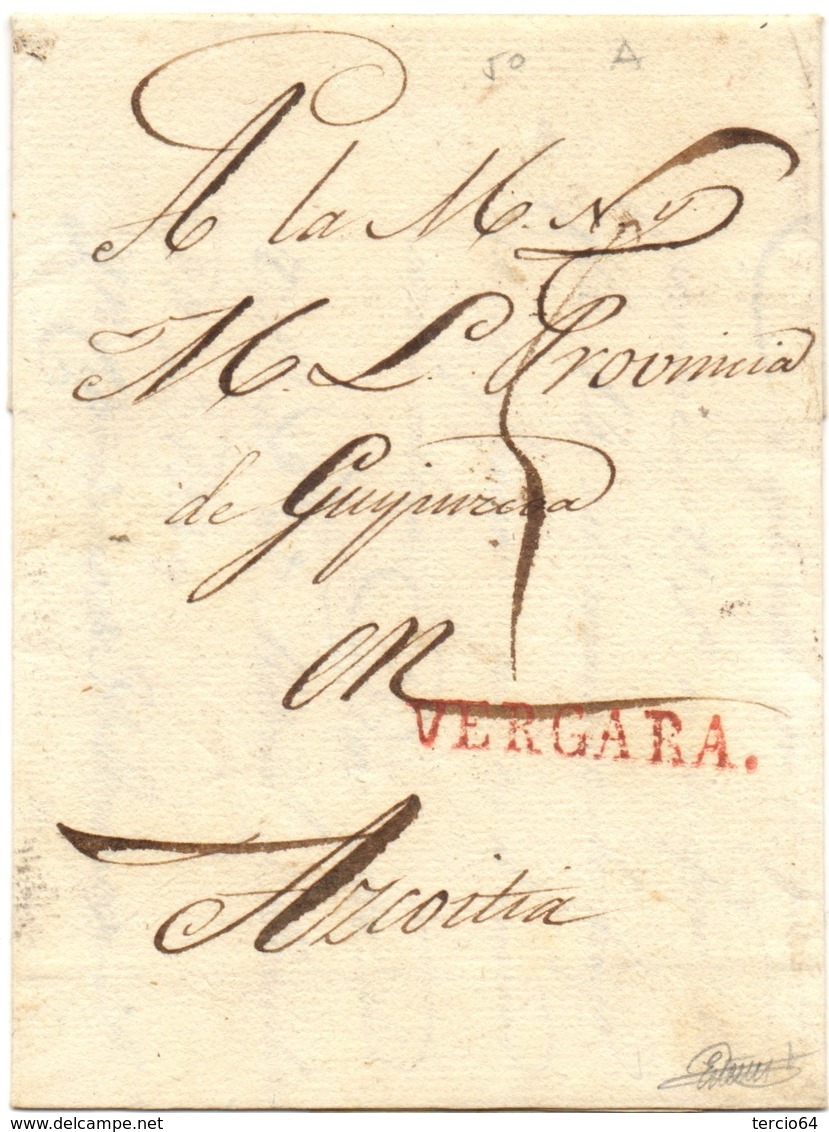 50 A
A la M. N. y
M L. Provincia
de Guipuzcoa
en
VERGARA.
Azcoitia
delcampe.net
tercio64